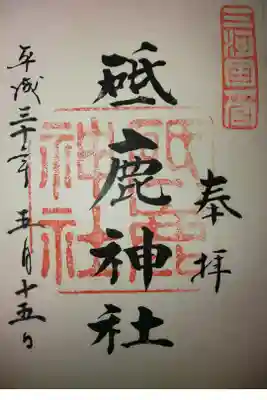 奉拝
砥鹿神社
砥鹿
神社
平成三十年五月十五日